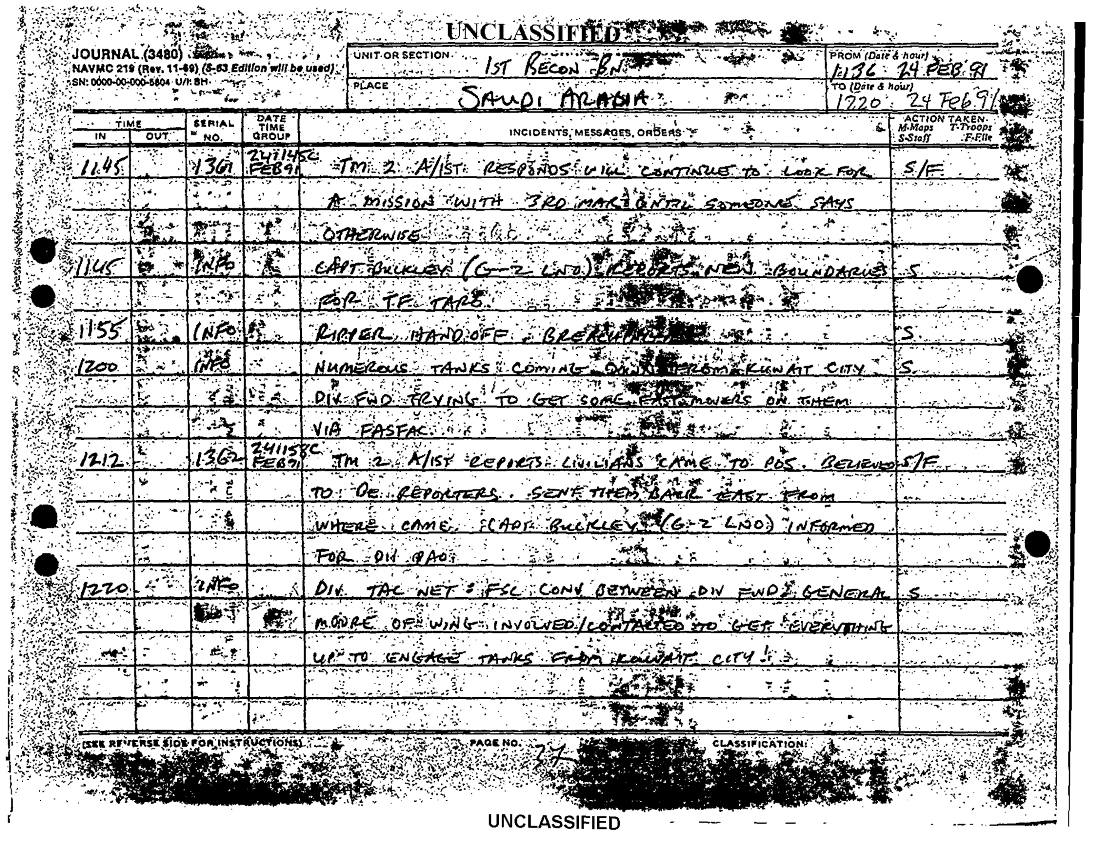 UNCLASSIFIED
JOURNAL (3480)
NAVMC 219 (Rev. 11-69) (6-63 Edition will be used)
SN: 0000-00-000-5604 U/I: BH
UNIT OR SECTION
1ST RECON BN
FROM (Date & hour)
1136 24 FEB 91
PLACE
SAUDI ARABIA
TO (Date & hour)
1220 24 Feb 91
TIME
IN OUT
SERIAL NO.
DATE TIME GROUP
INCIDENTS, MESSAGES, ORDERS
ACTION TAKEN
M-Maps T-Troops
S-Staff F-File
1145 1361 241145C FEB91 TM 2 A/1ST RESPONDS WILL CONTINUE TO LOOK FOR S/F
A MISSION WITH 3RD MAR UNTIL SOMEONE SAYS
OTHERWISE
1145 INFO CAPT BUCKLEY (G-2 LNO) REPORTS NEW BOUNDARIES S
FOR TF TARO
1155 INFO RIPPER HAND OFF S
1200 INFO NUMEROUS TANKS COMING DOWN FROM KUWAIT CITY S
DIV FWD TRYING TO GET SOME FASTMOVERS ON THEM
VIA FASFAC
1212 1362 241158C FEB91 TM 2 A/1ST REPORTS CIVILIANS CAME TO POS. BELIEVED S/F
TO BE REPORTERS. SENT THEM BACK EAST FROM
WHERE CAME. CAPT BUCKLEY (G-2 LNO) INFORMED
FOR DIV PAO
1220 INFO DIV TAC NET: FSC CONV BETWEEN DIV FWD & GENERAL S
MOORE OF WING INVOLVED/CONTACTED TO GET EVERYTHING
UP TO ENGAGE TANKS FROM KUWAIT CITY!
(SEE REVERSE SIDE FOR INSTRUCTIONS)
PAGE NO. 32
CLASSIFICATION:
UNCLASSIFIED